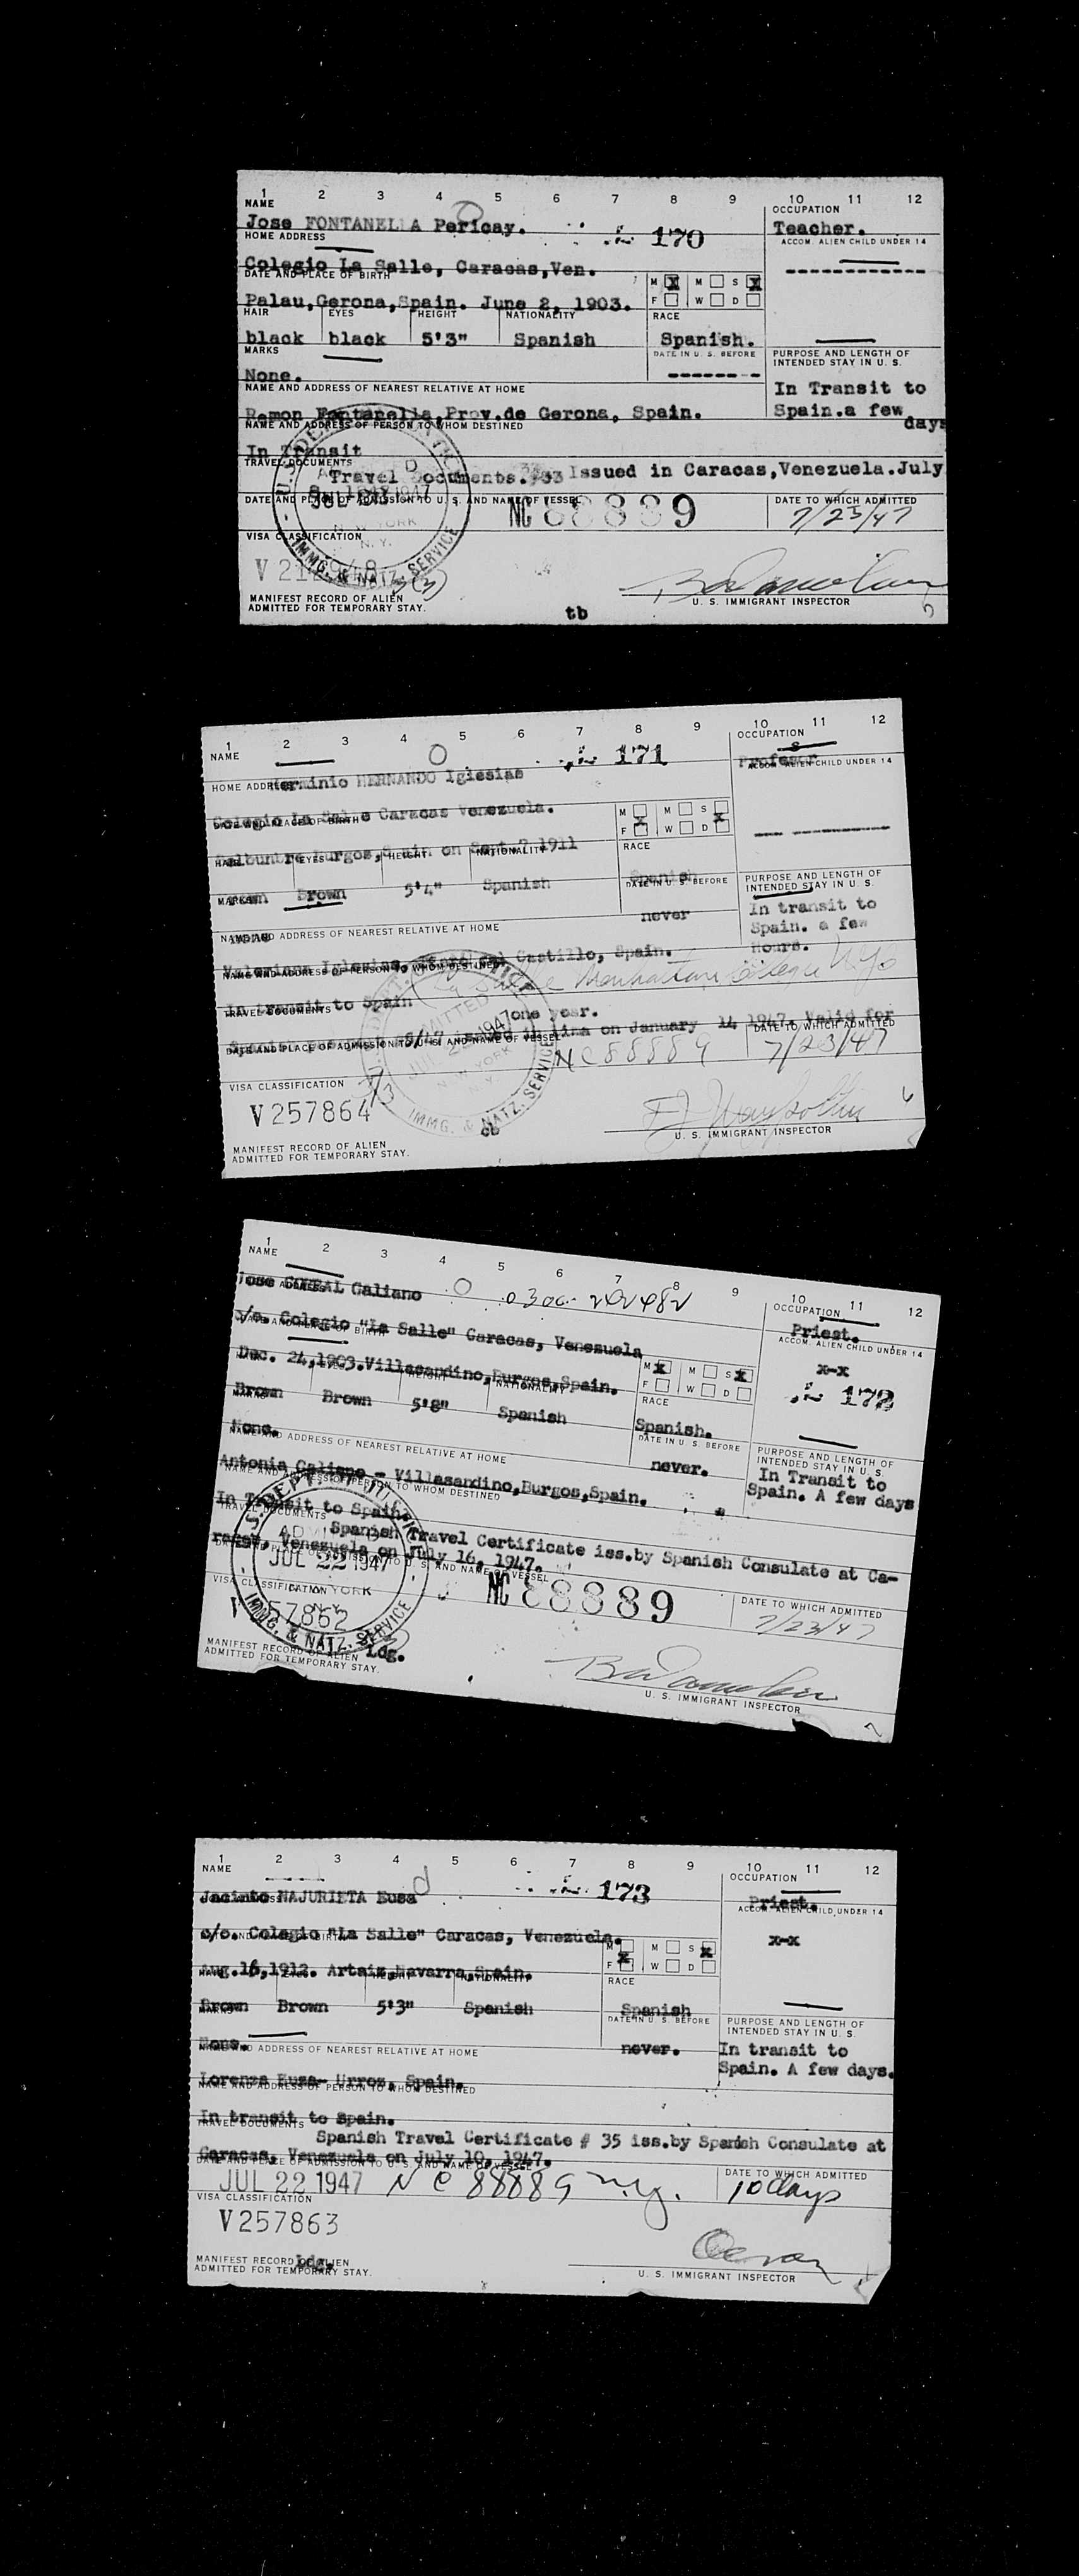 1 2 3 4 5 6 7 8 9 10 11 12
NAME
OCCUPATION
Jose FONTANELLA Pericay.
170
Teacher.
HOME ADDRESS
ACCOM. ALIEN CHILD UNDER 14
Colegio La Salle, Caracas, Ven.
------------
DATE AND PLACE OF BIRTH
M X M S X
F W D
Palau, Gerona, Spain. June 2, 1903.
HAIR EYES HEIGHT NATIONALITY RACE
black black 5'3" Spanish Spanish.
MARKS
DATE IN U. S. BEFORE
PURPOSE AND LENGTH OF
INTENDED STAY IN U. S.
None.
-------
In Transit to
Spain. a few
days
NAME AND ADDRESS OF NEAREST RELATIVE AT HOME
Ramon Fontanella, Prov. de Gerona, Spain.
NAME AND ADDRESS OF PERSON TO WHOM DESTINED
In Transit
TRAVEL DOCUMENTS
Travel Documents. Issued in Caracas, Venezuela. July
DATE AND PLACE OF ADMISSION TO U. S. AND NAME OF VESSEL
DATE TO WHICH ADMITTED
NC 88889
7/23/47
VISA CLASSIFICATION
IMMG. & NATZ. SERVICE
MANIFEST RECORD OF ALIEN
ADMITTED FOR TEMPORARY STAY.
tb
U. S. IMMIGRANT INSPECTOR
1 2 3 4 5 6 7 8 9 10 11 12
NAME
OCCUPATION
171
Profesor
Herminio HERNANDO Iglesias
HOME ADDRESS
ACCOM. ALIEN CHILD UNDER 14
Colegio La Salle Caracas Venezuela.
DATE AND PLACE OF BIRTH
M M S
F W D
Burgos, Spain on Sept. 7 1911
HAIR EYES HEIGHT NATIONALITY RACE
Brown Brown 5'4" Spanish Spanish
MARKS
DATE IN U. S. BEFORE
PURPOSE AND LENGTH OF
INTENDED STAY IN U. S.
none
never
In transit to
Spain. a few
Hours.
NAME AND ADDRESS OF NEAREST RELATIVE AT HOME
Iglesias, Castillo, Spain.
NAME AND ADDRESS OF PERSON TO WHOM DESTINED
La Salle Manhattan College
In transit to Spain
TRAVEL DOCUMENTS
one year.
issued in Lima on January 14 1947. Valid for
DATE AND PLACE OF ADMISSION TO U. S. AND NAME OF VESSEL
DATE TO WHICH ADMITTED
NC 88889
7/23/47
VISA CLASSIFICATION
V257864
IMMG. & NATZ. SERVICE
MANIFEST RECORD OF ALIEN
ADMITTED FOR TEMPORARY STAY.
U. S. IMMIGRANT INSPECTOR
1 2 3 4 5 6 7 8 9 10 11 12
NAME
OCCUPATION
Jose CORRAL Galiano
0300-242482
Priest.
ACCOM. ALIEN CHILD UNDER 14
c/o. Colegio "La Salle" Caracas, Venezuela
x-x
172
Dec. 24, 1903. Villasandino, Burgos, Spain.
M X M S X
F W D
NATIONALITY RACE
Brown Brown 5'8" Spanish Spanish.
DATE IN U. S. BEFORE
PURPOSE AND LENGTH OF
INTENDED STAY IN U. S.
None.
never.
In Transit to
Spain. A few days
NAME AND ADDRESS OF NEAREST RELATIVE AT HOME
Antonia Galiano - Villasandino, Burgos, Spain.
NAME AND ADDRESS OF PERSON TO WHOM DESTINED
In Transit to Spain.
TRAVEL DOCUMENTS
Spanish Travel Certificate iss. by Spanish Consulate at Ca-
racas, Venezuela on July 16, 1947.
DATE AND PLACE OF ADMISSION TO U. S. AND NAME OF VESSEL
DATE TO WHICH ADMITTED
ADMITTED
JUL 22 1947
NEW YORK
N.Y.
IMMG. & NATZ. SERVICE
NC 88889
7/23/47
VISA CLASSIFICATION
57862
Ldg.
MANIFEST RECORD OF ALIEN
ADMITTED FOR TEMPORARY STAY.
U. S. IMMIGRANT INSPECTOR
1 2 3 4 5 6 7 8 9 10 11 12
NAME
OCCUPATION
Jacinto NAJURIETA Eusa
173
Priest.
ACCOM. ALIEN CHILD UNDER 14
c/o. Colegio "La Salle" Caracas, Venezuela.
x-x
M M S X
F W D
Aug. 16, 1912. Artaiz, Navarra, Spain.
NATIONALITY RACE
Brown Brown 5'3" Spanish Spanish
DATE IN U. S. BEFORE
PURPOSE AND LENGTH OF
INTENDED STAY IN U. S.
None.
never.
In transit to
Spain. A few days.
NAME AND ADDRESS OF NEAREST RELATIVE AT HOME
Lorenza Eusa- Urroz, Spain.
NAME AND ADDRESS OF PERSON TO WHOM DESTINED
In transit to Spain.
TRAVEL DOCUMENTS
Spanish Travel Certificate # 35 iss. by Spanish Consulate at
Caracas, Venezuela on July 10, 1947.
DATE AND PLACE OF ADMISSION TO U. S. AND NAME OF VESSEL
DATE TO WHICH ADMITTED
JUL 22 1947 NC 88889 n.y.
10 days
VISA CLASSIFICATION
V257863
MANIFEST RECORD OF ALIEN
ADMITTED FOR TEMPORARY STAY.
U. S. IMMIGRANT INSPECTOR